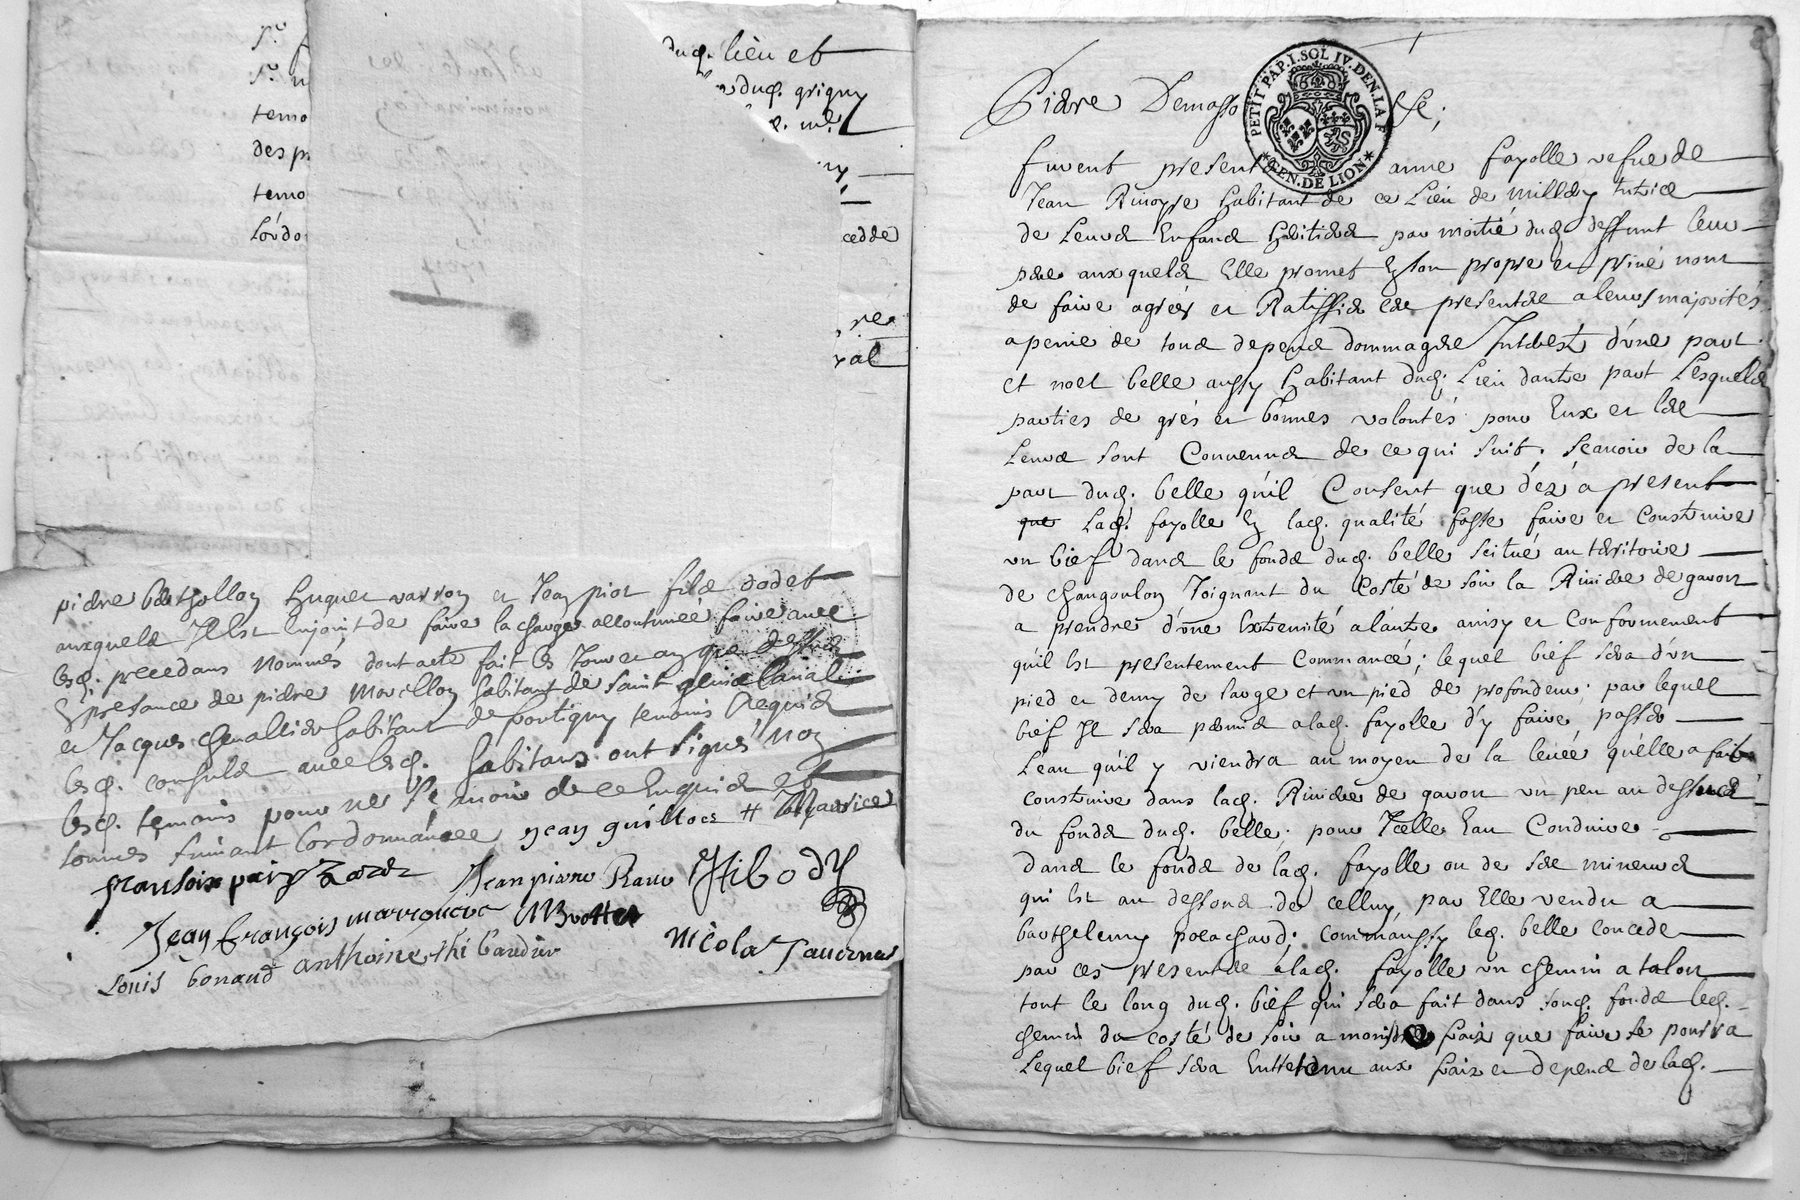 Sr.
Sr.
temo
desp
temo
Lordo
dud. lieu et
dud. grigny
cedde
re
ral
pierre berthollon huguet varron et Jean piot fils dodet
auxquels Il Est Enjoint de faire la charge accoutumée faire avec
lesd. precedans Nommés dont acte fait les Jour et an que dessus
En presance de pierre Morellon habitant de saint genis laual
et Jacques cheuallier habitant de sontigny temoins Requis
lesd. consuls auec lesd. habitans ont signés Non
lesd. temoins pour ne sçauoir de ce Enquis et
sommés suiuant lordonnance jean guillot # Maurice
fransois
Jean piere Raue Thibody
Jean François marroucve MBrottet
nicola Tauernier
Louis bonand anthoine thibaudier
PETIT PAP. I. SOL IV. DEN. LA F
GEN. DE LION
Pierre Demasso
furent present anne fayolle vefue de
Jean Rinoyre habitant de ce Lieu de Millery tutrice
de Leurs Enfans héritiers par moitié dud. deffunt leur
pere auxquels Elle promet En son propre et priué nom
de faire agréer et Ratiffier ces presentes a leurs majorités
a peine de tous depens dommages Interest d'une part
et noel belle aussy habitant dud. Lieu dautre part Lesquelles
parties de grés et bonnes volontés pour Eux et les
Leurs sont Conuenus de ce qui suit, sçauoir de la
part dud. belle qu'il Consent que dés a present
que lad. fayolle En lad. qualité fasse faire et construire
un bief dans le fonds dud. belle scitué au territoire
de changoulon Joignant du Costé de soir la Riuiere de garon
a prendre d'une Extremité a l'autre ainsy et conformement
qu'il Est presentement Commancé; lequel bief sera d'un
pied et demy de large et un pied de profondeur; par lequel
bief Il sera permis a lad. fayolle d'y faire passer
L'eau qu'il y viendra au moyen de la leuée qu'elle a fait
construire dans lad. Riuiere de garon un peu au dessus
du fonds dud. belle; pour Icelle Eau Conduire
dans le fonds de lad. fayolle ou de ses mineurs
qui Est au dessous de celluy par Elle vendu a
barthelemy polachard; comm'aussy led. belle concede
par ces presentes a lad. fayolle un chemin a talon
tout le long dud. bief qui sera fait dans soud. fonds led.
chemin du costé de soir a moindre frais que faire se pourra
Lequel bief sera Entretenu aux fraix et depens de lad.